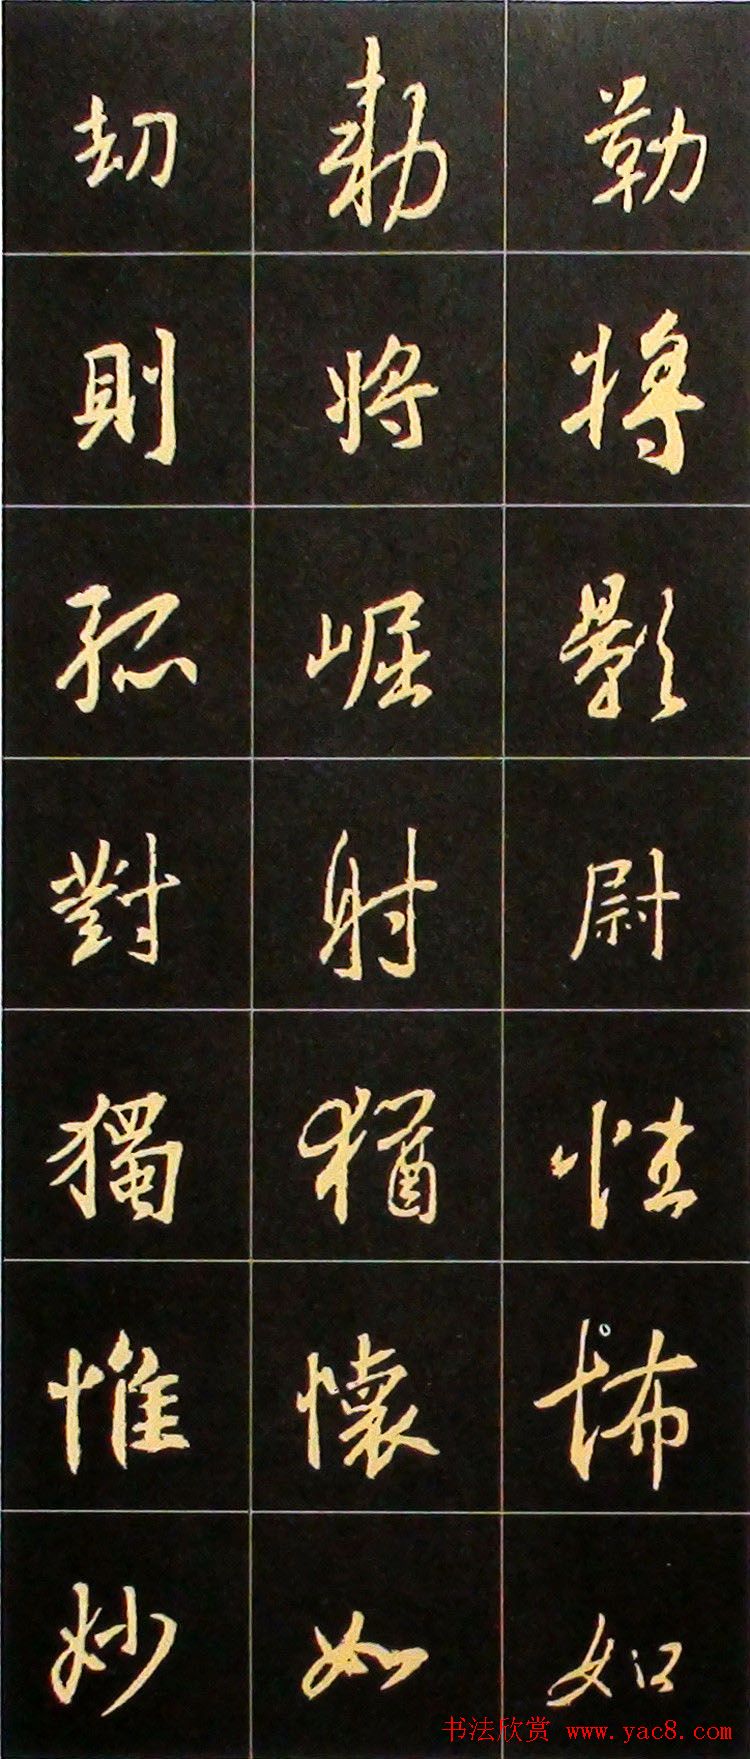 劫 勅 勒
則 將 將
孤 崛 影
對 射 尉
獨 猶 性
惟 懷 怖
妙 如 如
书法欣赏 www.yac8.com